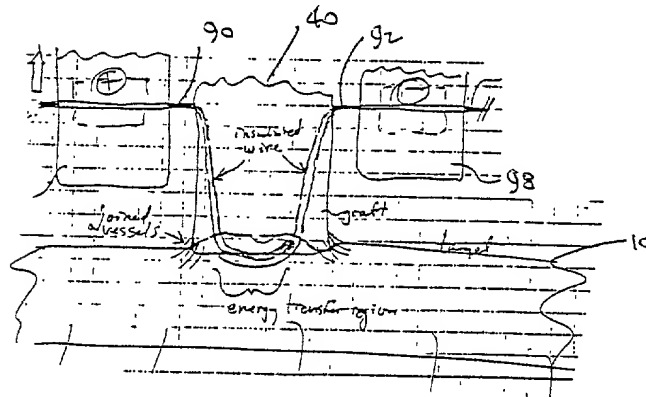 90
40
92
+
insulated
wire
98
joined
vessels
graft
target
10
energy transfer region